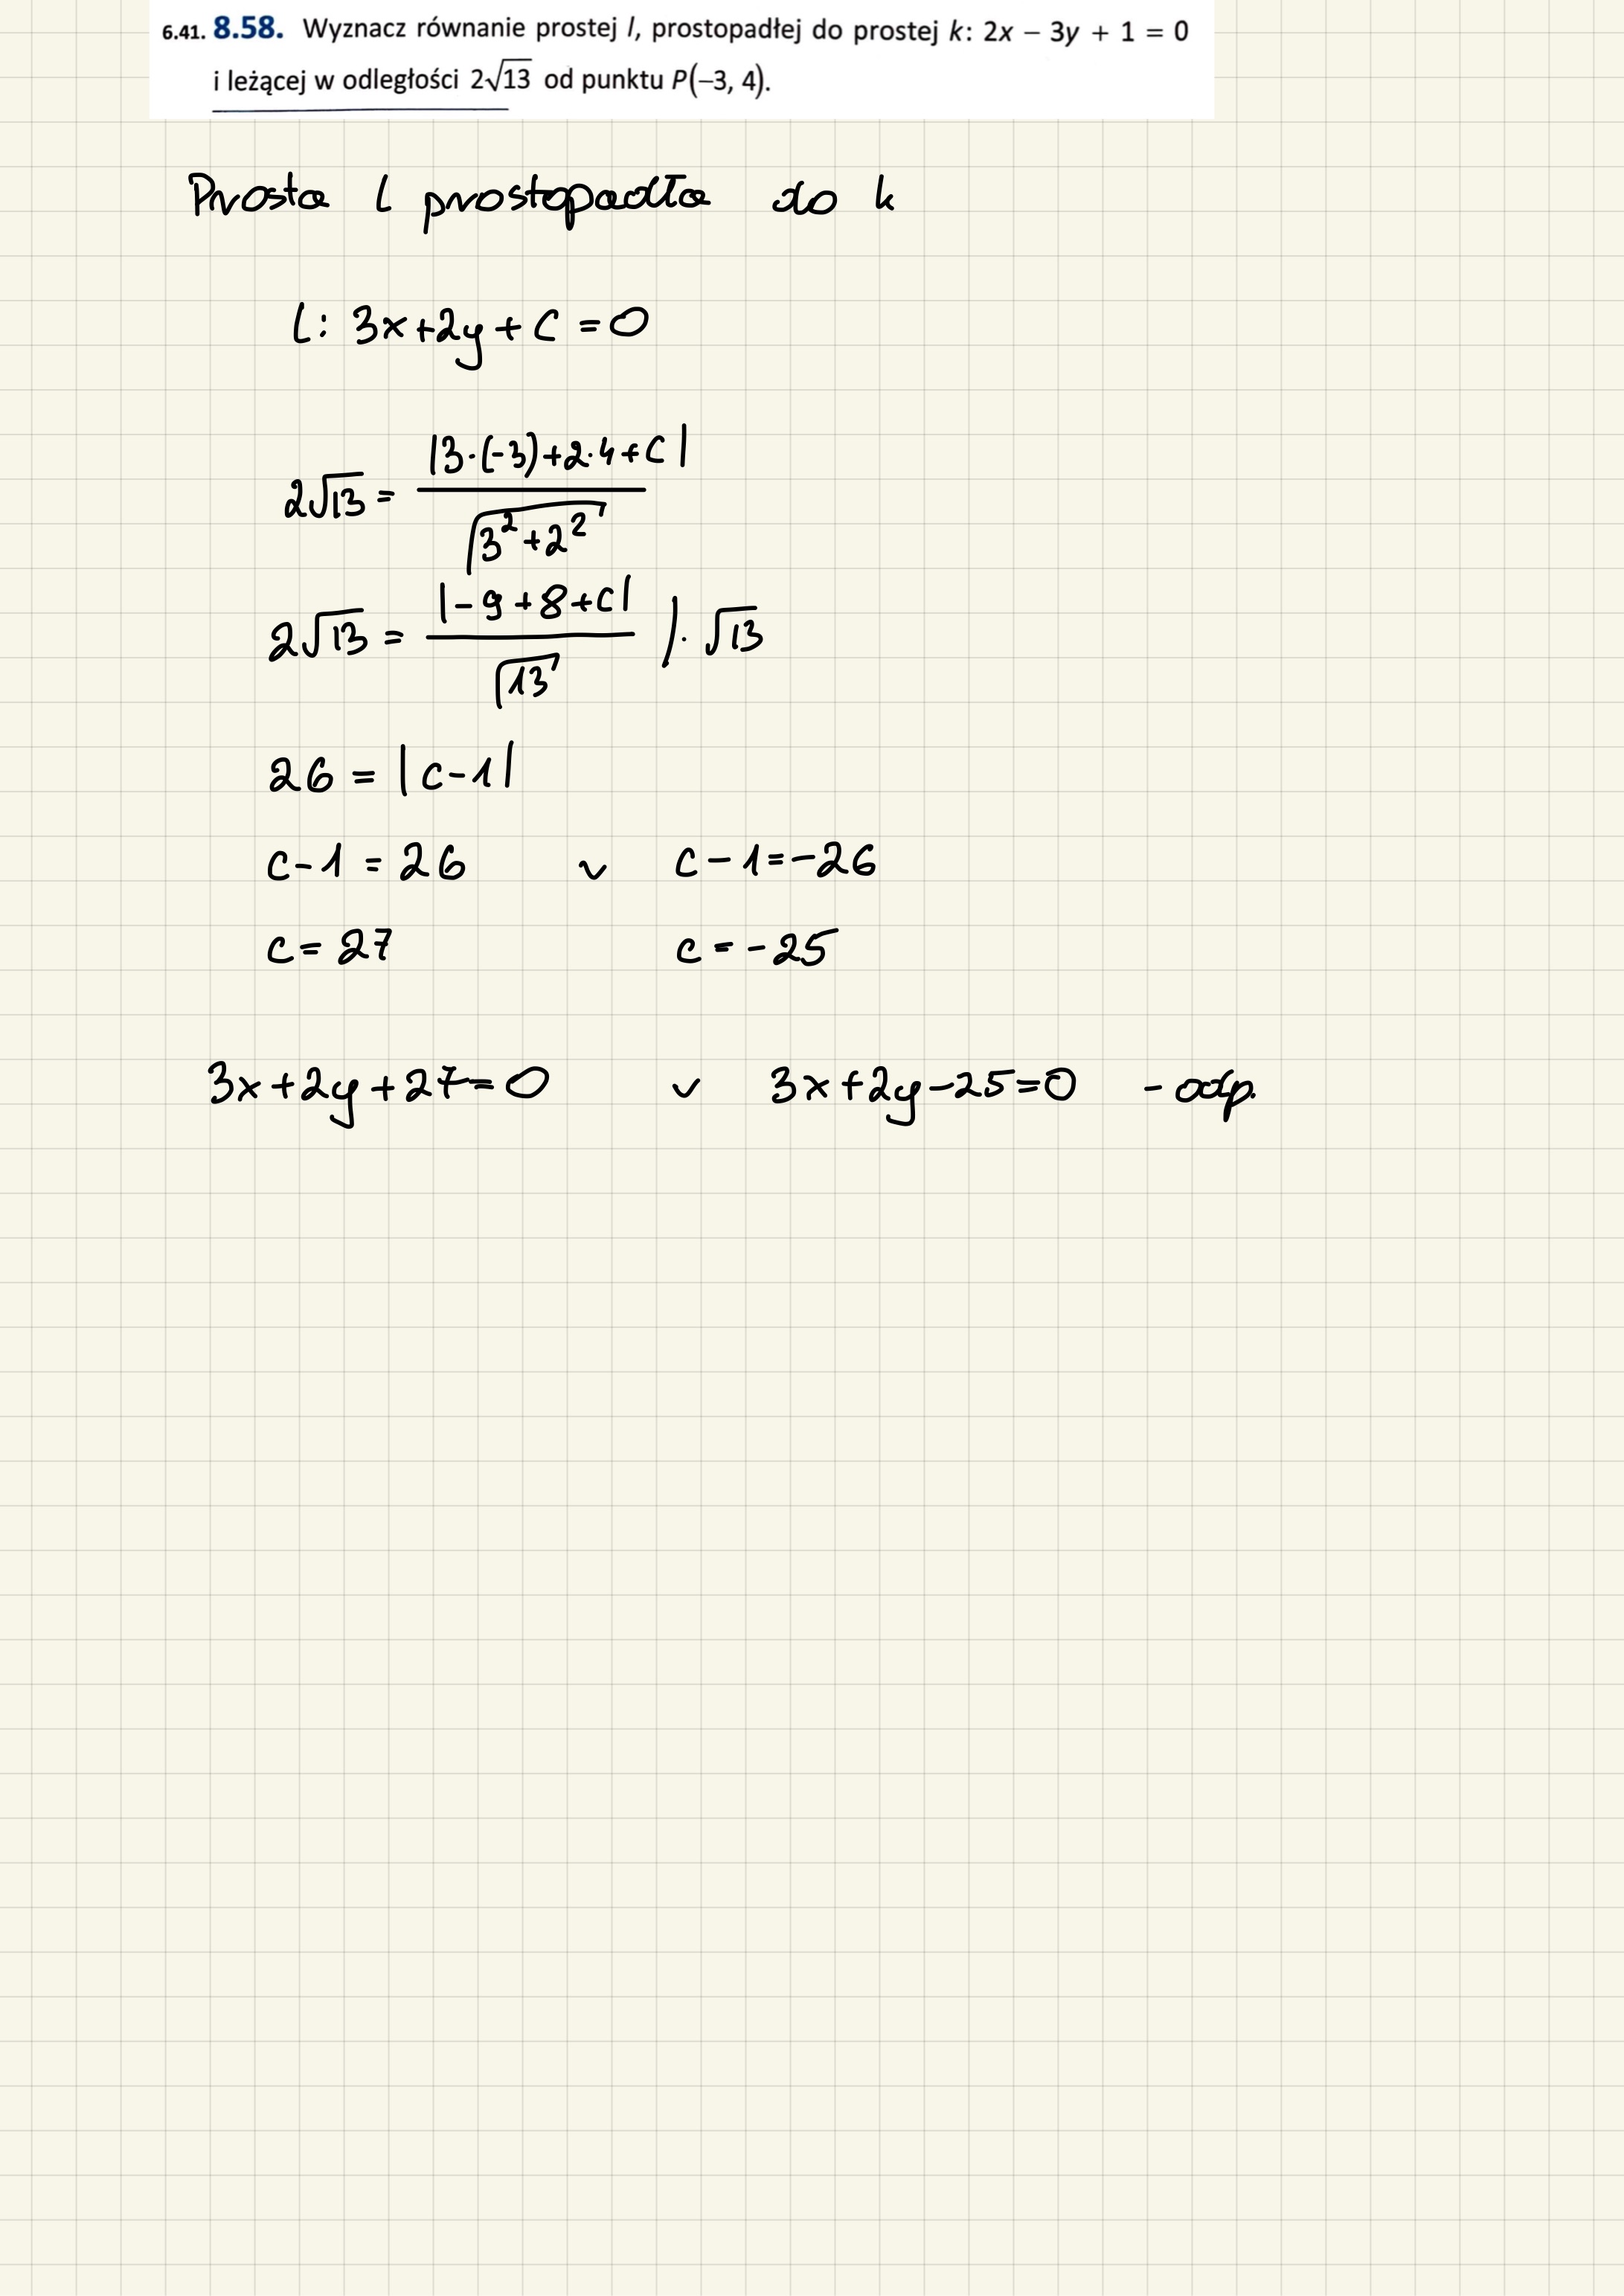 6.41. 8.58. Wyznacz równanie prostej l, prostopadłej do prostej k: 2x − 3y + 1 = 0
i leżącej w odległości 2√13 od punktu P(−3, 4).
Prosta l prostopadła do k
l: 3x+2y+C=0
2√13 = |3·(-3)+2·4+C| / √(3²+2²)
2√13 = |-9+8+c| / √13 /·√13
26 = |c-1|
c-1=26 ∨ c-1=-26
c=27 c=-25
3x+2y+27=0 ∨ 3x+2y-25=0 - odp.